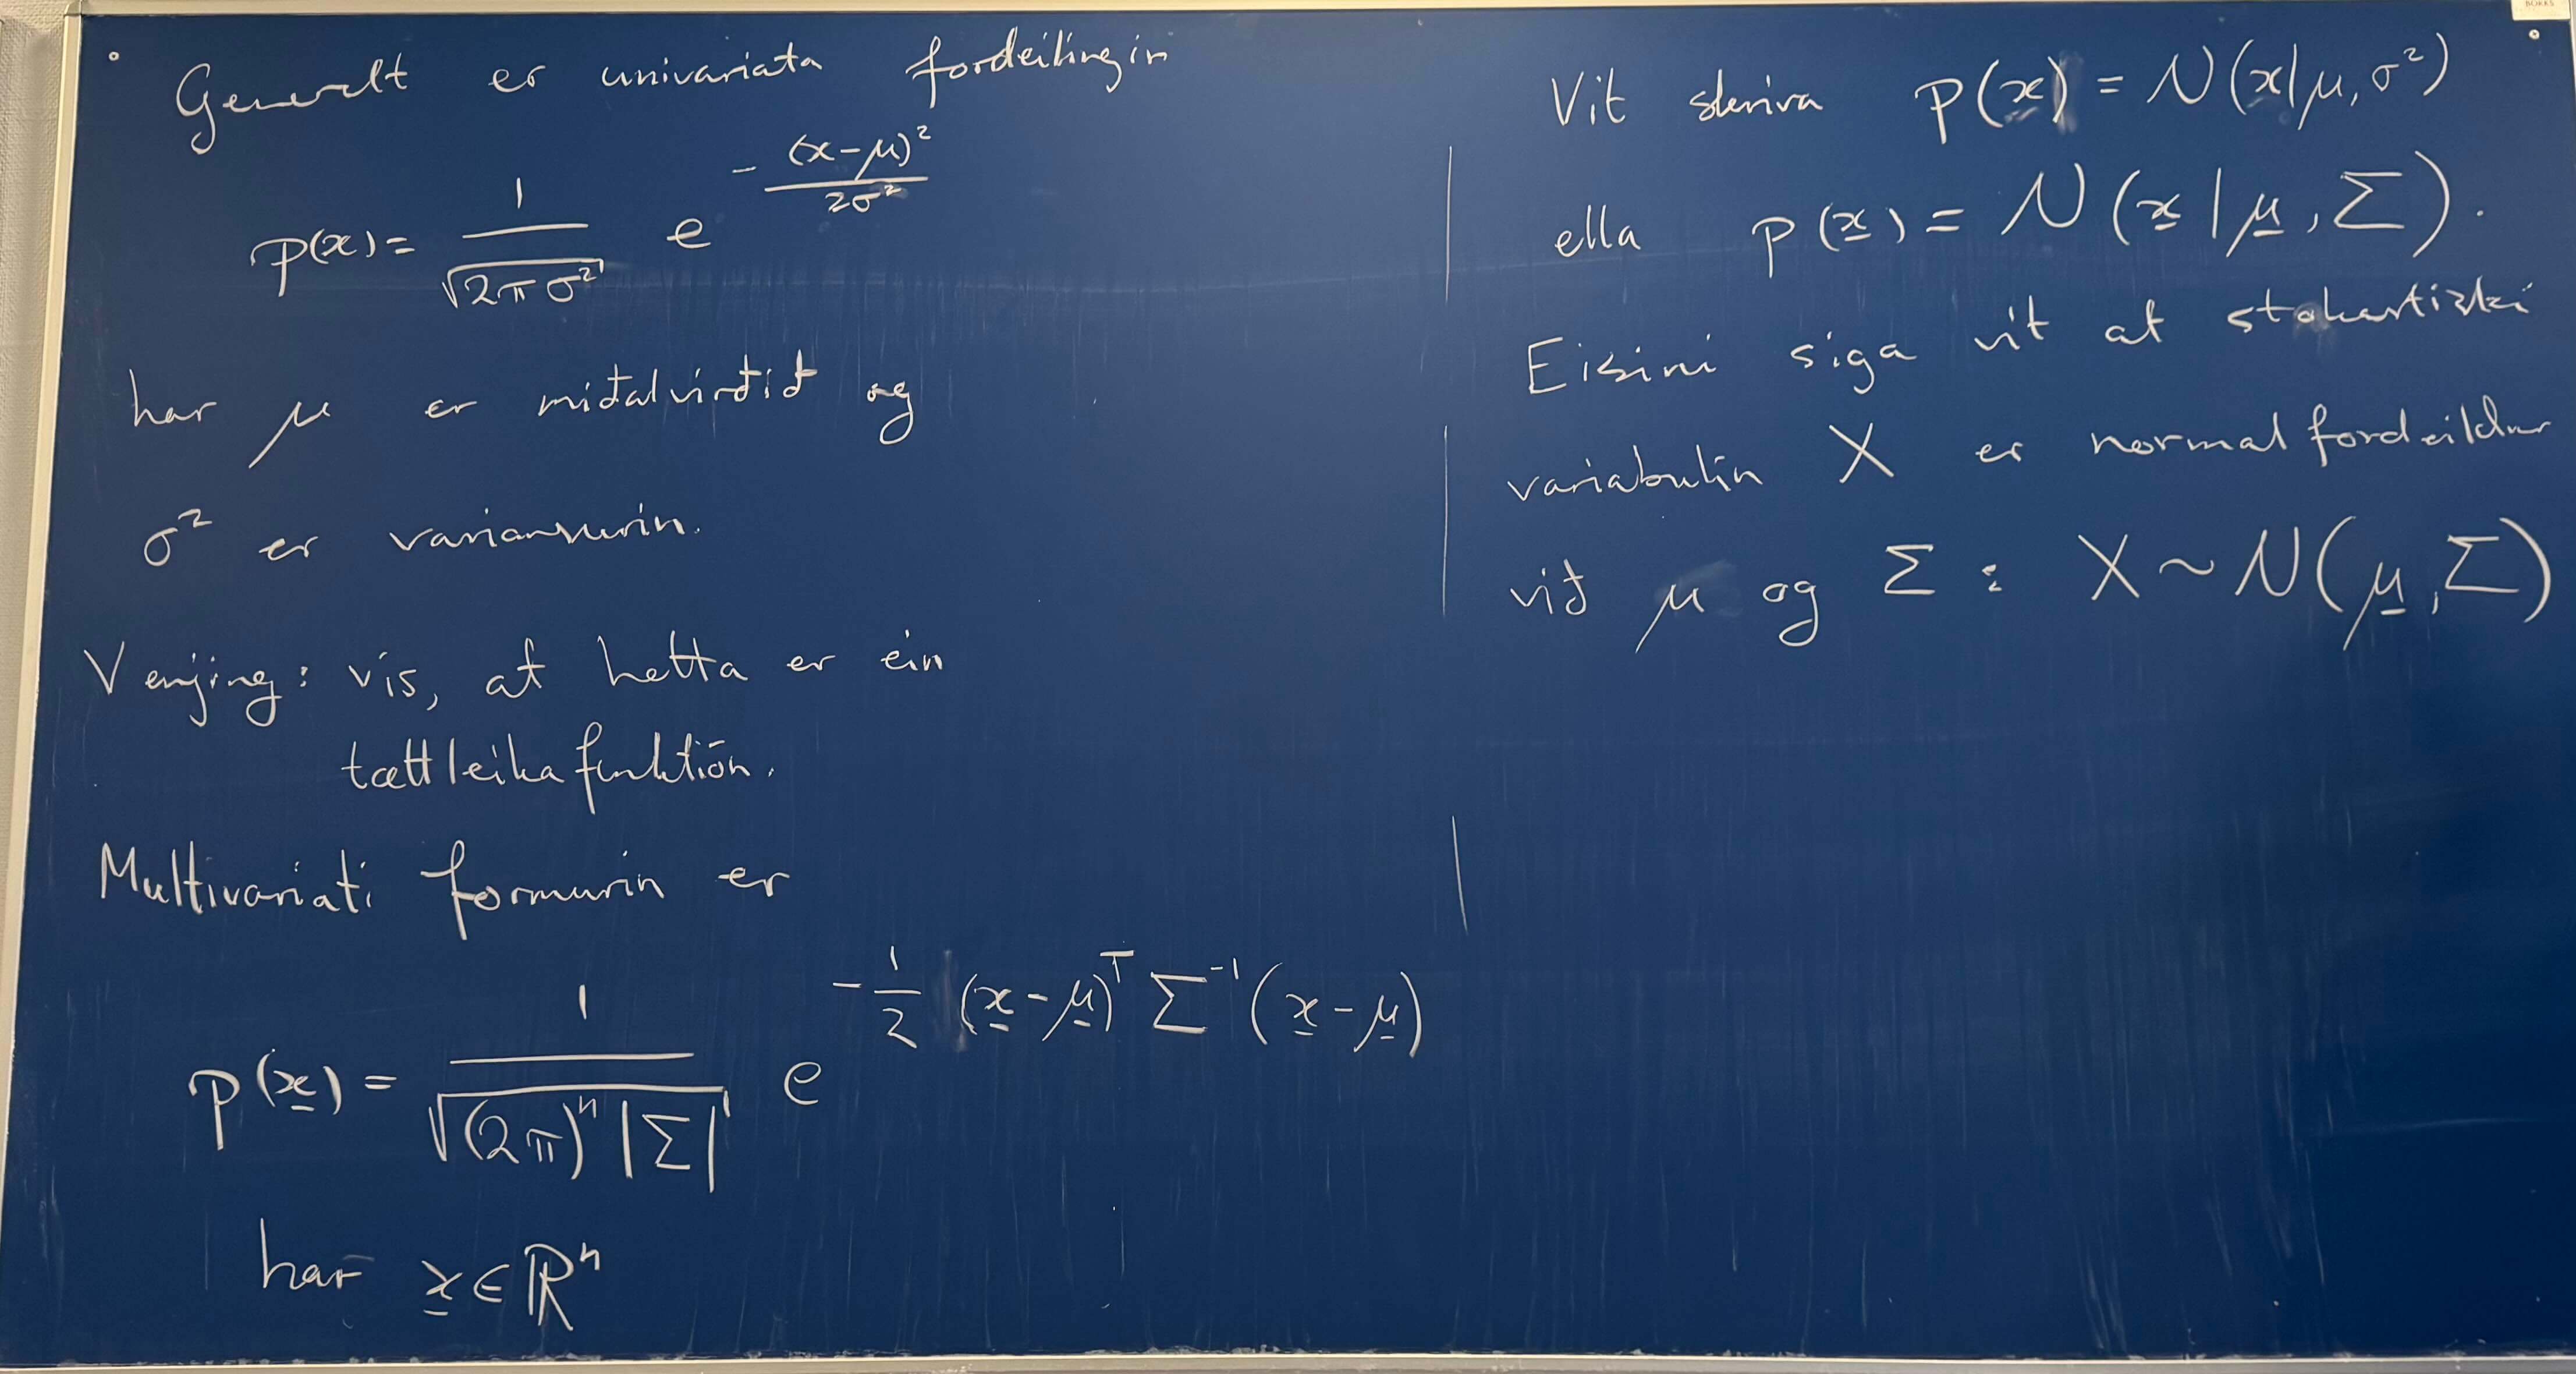 Generelt er univariata fordeilingin
p(x) = 1/√(2πσ²) e^(-(x-μ)²/(2σ²))
har μ er miðalvirðið og
σ² er variansurin.
Venjing: vís, at hetta er ein
tættleikafunktión.
Multivariati formurin er
p(x̲) = 1/√((2π)ⁿ|Σ|) e^(-1/2 (x̲-μ̲)ᵀ Σ⁻¹ (x̲-μ̲))
har x̲ ∈ ℝⁿ
Vit skriva p(x) = N(x|μ, σ²)
ella p(x̲) = N(x̲|μ̲, Σ).
Eisini siga vit at stokastiski
variabulin X er normalfordeildur
við μ og Σ : X ~ N(μ̲, Σ)